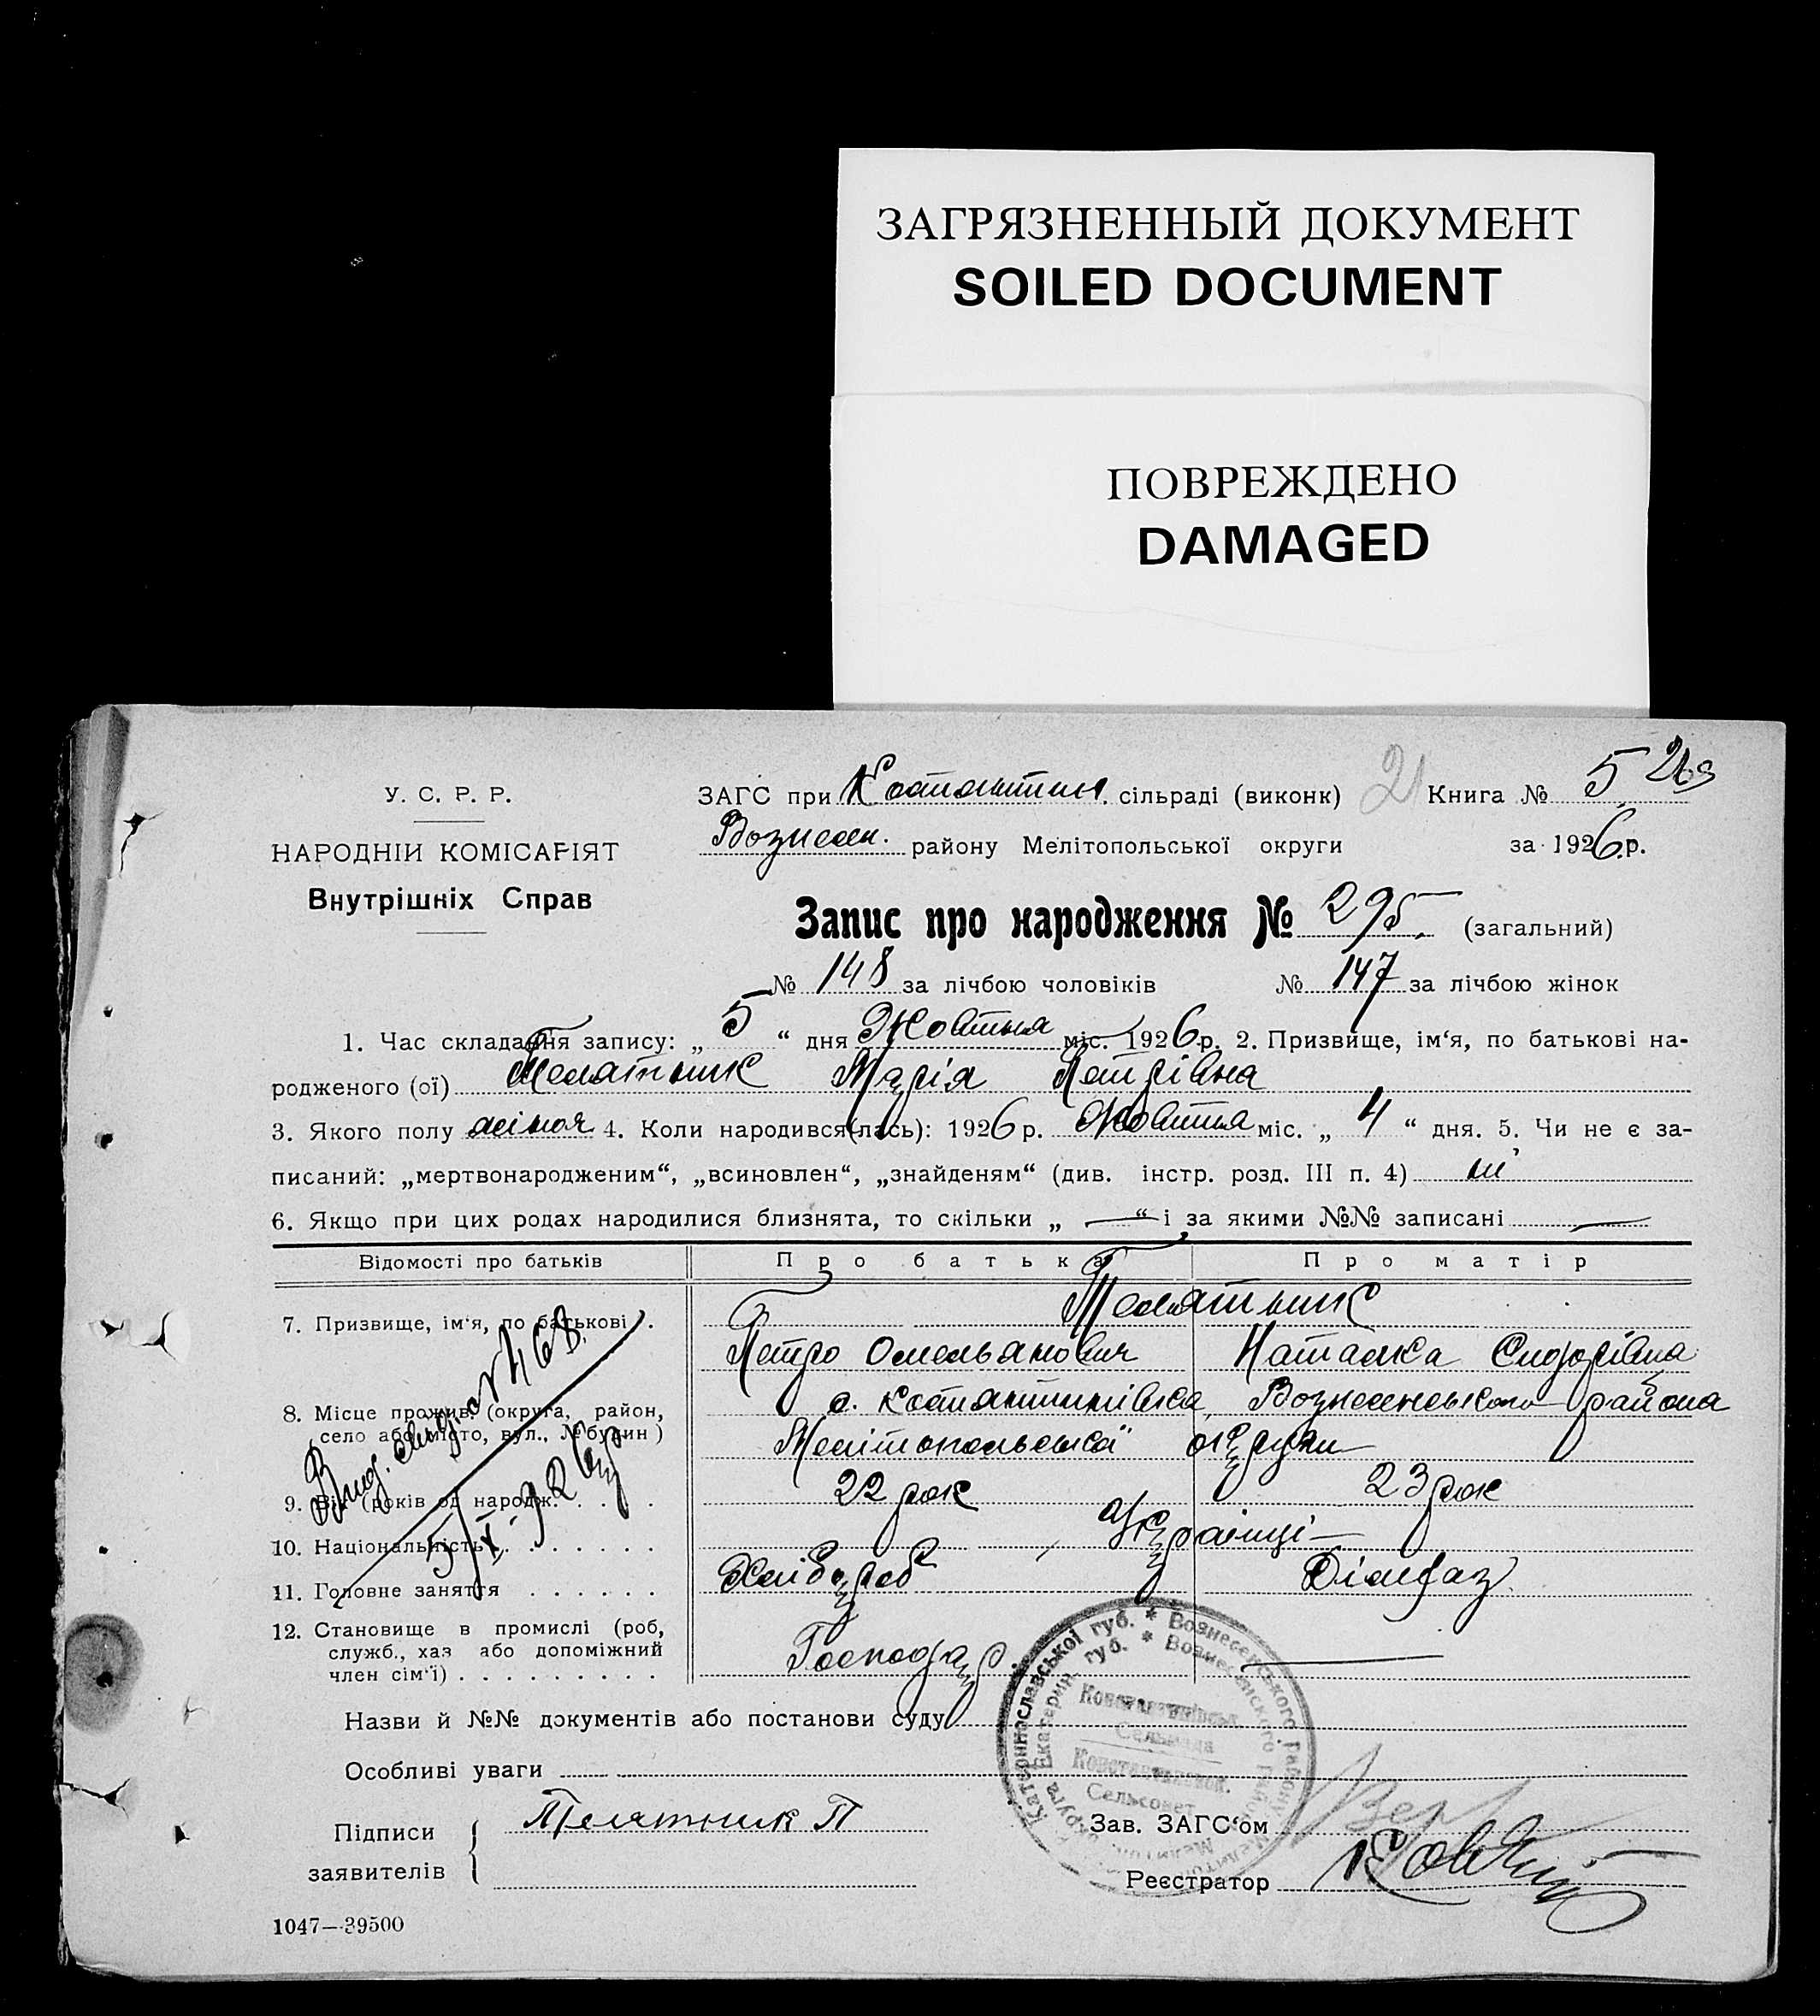 ЗАГРЯЗНЕННЫЙ ДОКУМЕНТ
SOILED DOCUMENT
ПОВРЕЖДЕНО
DAMAGED
У. С. Р. Р.
НАРОДНІЙ КОМІСАРІЯТ
Внутрішніх Справ
ЗАГС при Костянтин. сільраді (виконк) 21 Книга № 5
Вознесен. району Мелітопольської округи за 1926 р.
Запис про народження № 295. (загальний)
№ 148 за лічбою чоловіків № 147 за лічбою жінок
1. Час складання запису: „ 5 “ дня Жовтня міс. 1926 р. 2. Призвище, ім‘я, по батькові на-
родженого (ої) Телятник Марія Петрівна
3. Якого полу жіноч 4. Коли народився(лась): 1926 р. Жовтня міс. „ 4 “ дня. 5. Чи не є за-
писаний: „мертвонародженим“, „всиновлен“, „знайденям“ (див. інстр. розд. III п. 4) ні
6. Якщо при цих родах народилися близнята, то скільки „ — “ і за якими №№ записані —
Відомості про батьків Про батька Про матір
7. Призвище, ім‘я, по батькові . Телятник
Петро Омельянович Наталка Сидорівна
8. Місце прожив. (округа, район, село або місто, вул., № будин ) с. Костянтинівка, Вознесенського района
Мелітопольської округи
9. Вік (років од народж. . . . . 22 рок 23 рок
10. Національність . . . . . . . Українці
11. Головне заняття . . . . . . Хлібороб
12. Становище в промислі (роб,
служб., хаз або допоміжний
член сім‘ї) . . . . . . . . . Господар —
Вид. 468.
5/X. 926 р
Назви й №№ документів або постанови суду
Особливі уваги
Підписи
заявителів
Телятник П
Зав. ЗАГС‘ом
Реєстратор
Катеринославської губ. * Вознесенського Району
Екатерин. губ. * Вознесенского Района
Сельсовет
1047—39500